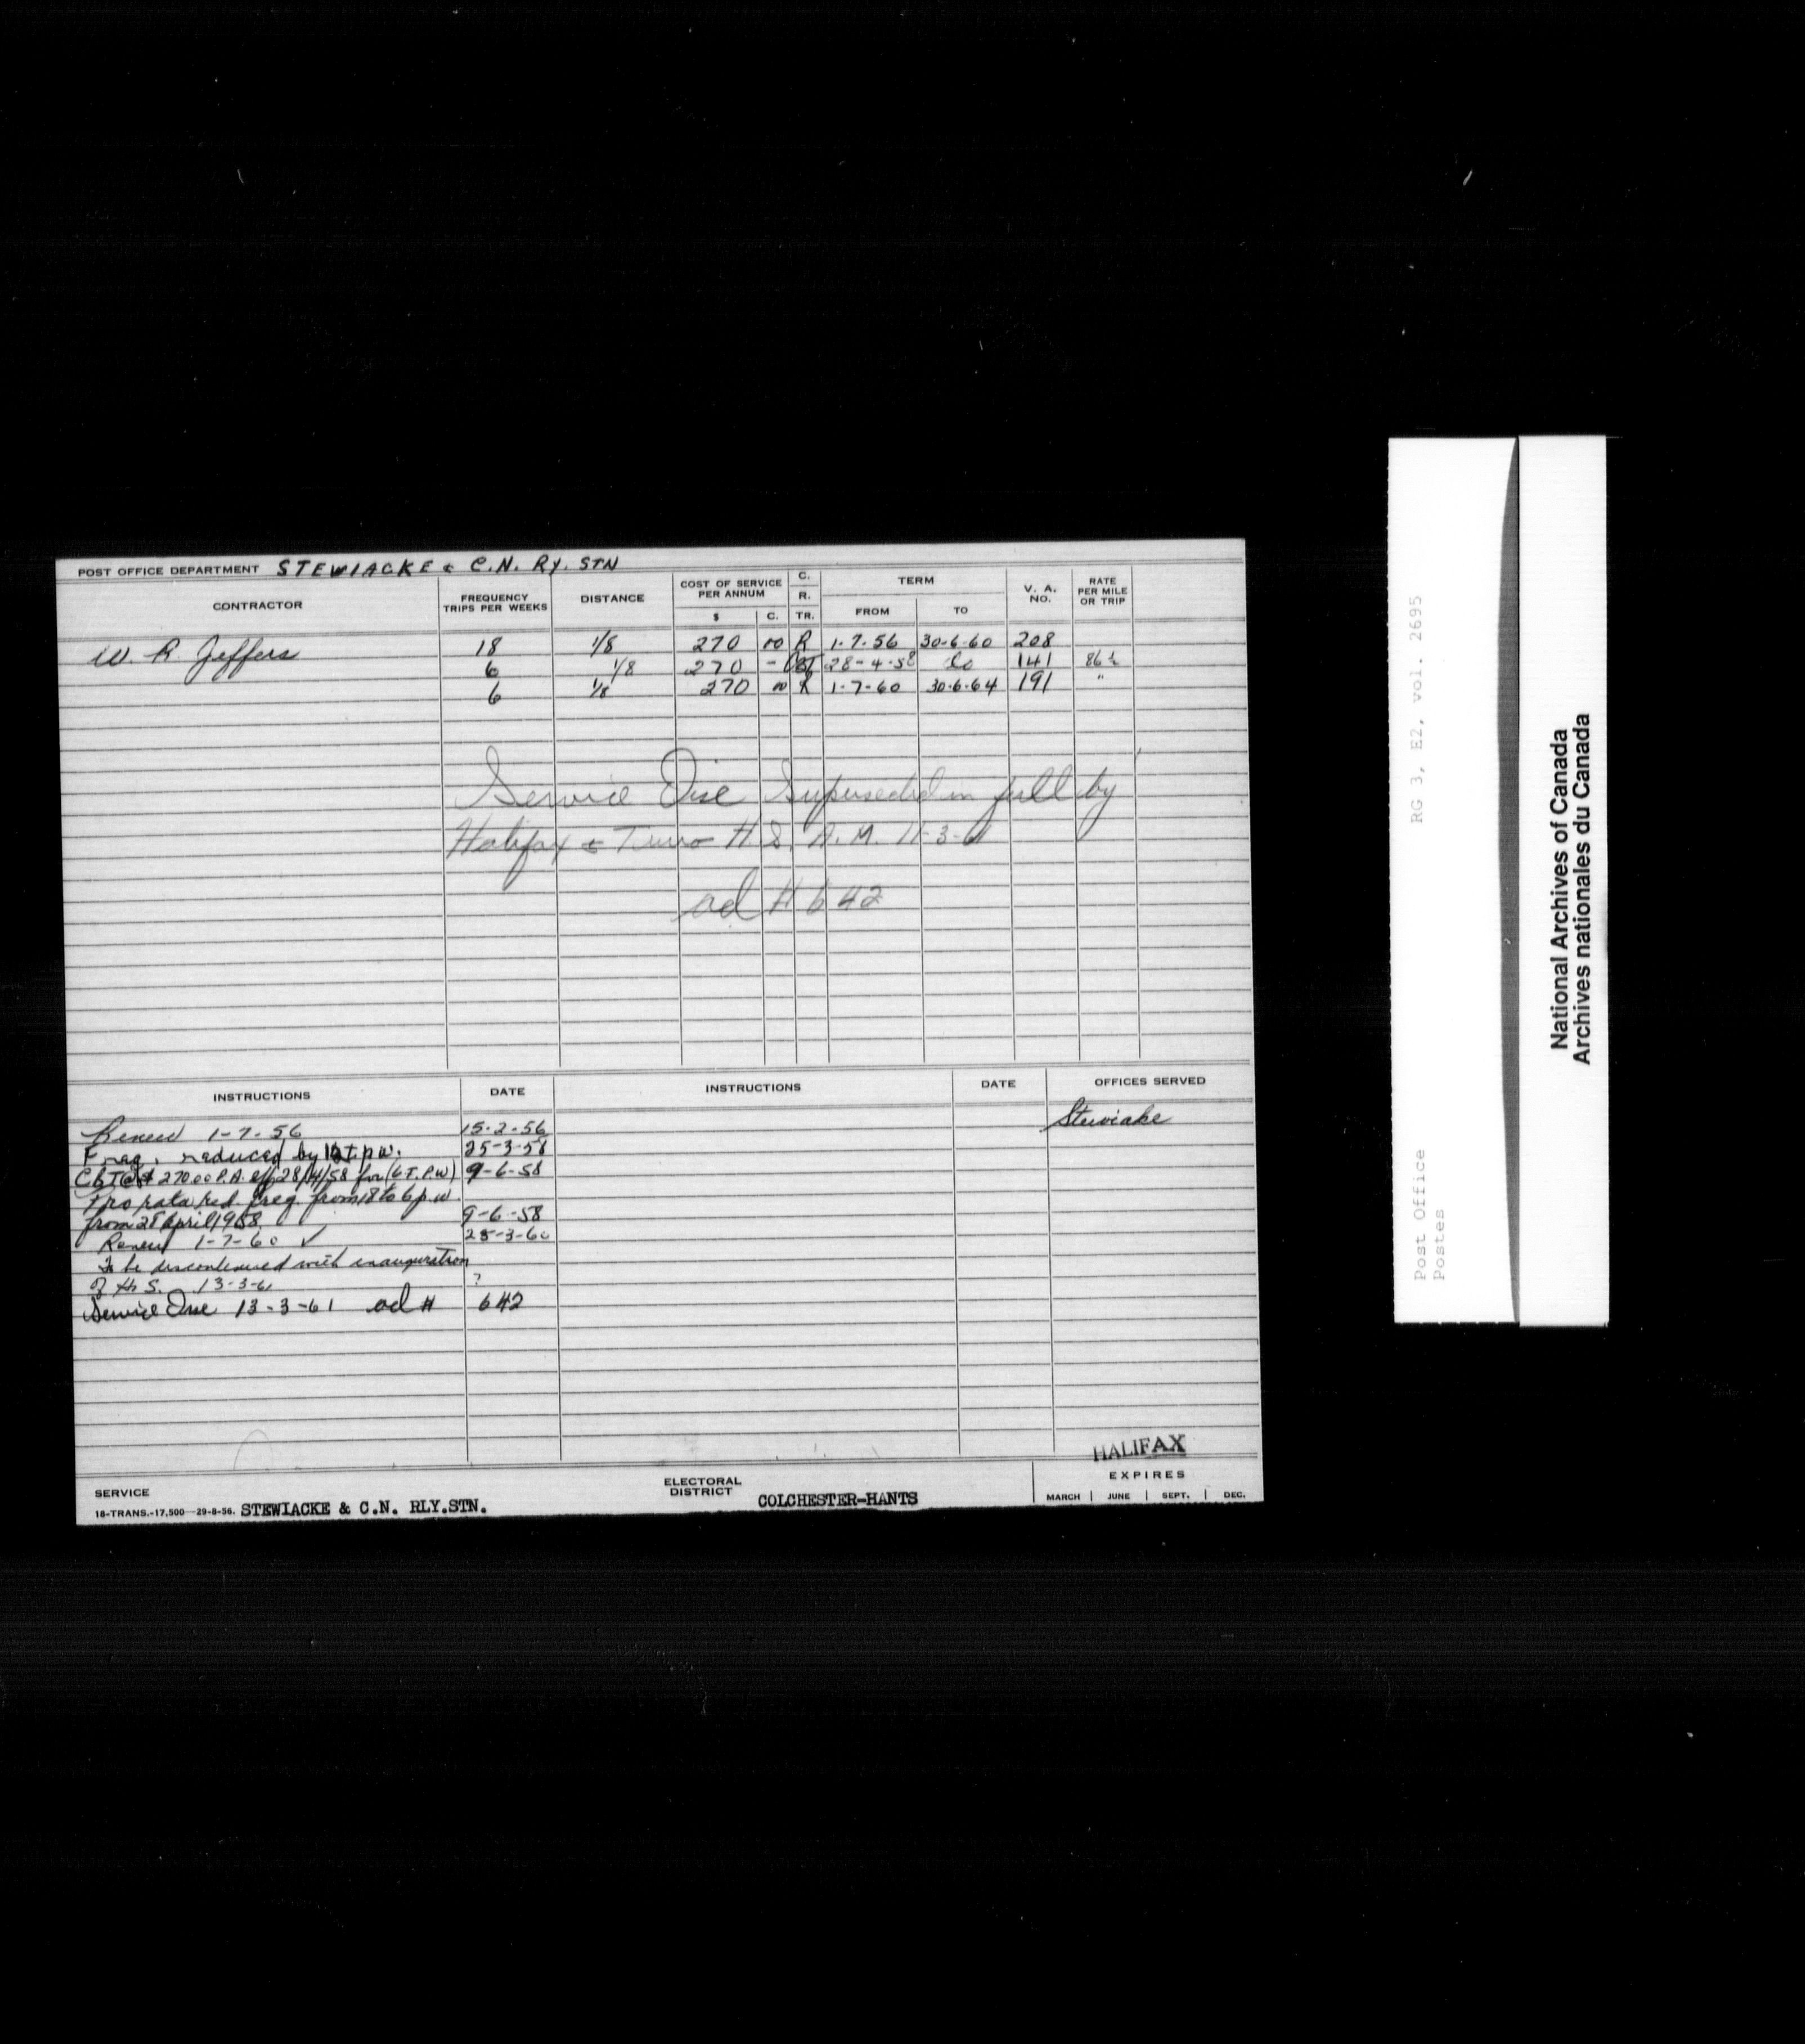 POST OFFICE DEPARTMENT STEWIACKE & C.N. RY. STN
CONTRACTOR FREQUENCY TRIPS PER WEEKS DISTANCE COST OF SERVICE PER ANNUM $ C. C. R. TR. TERM FROM TO V. A. NO. RATE PER MILE OR TRIP
W. R. Jeffers 18 1/8 270 00 R 1-7-56 30-6-60 208
6 1/8 270 - 28-4-58 do 141 86½
6 1/8 270 00 R 1-7-60 30-6-64 191 "
Service Disc Superseded in full by
Halifax & Truro H.S. A.M. 11-3-61
ad # 642
INSTRUCTIONS DATE INSTRUCTIONS DATE OFFICES SERVED
Renew 1-7-56 15-2-56 Stewiake
Freq. reduced by 12 t.p.w. 25-3-58
CBT @ $270.00 P.A. eff 28/4/58 for (6 T.P.W) 9-6-58
Pro rata red. freq. from 18 to 6 p.w
from 28 April 1958 9-6-58
Renew 1-7-60 ✓ 25-3-60
To be discontinued with inauguration
of H.S. 13-3-61 ?
Service Disc 13-3-61 ad # 642
HALIFAX
SERVICE ELECTORAL DISTRICT EXPIRES
18-TRANS.-17,500—29-8-56. STEWIACKE & C.N. RLY.STN. COLCHESTER-HANTS MARCH | JUNE | SEPT. | DEC.
RG 3, E2, vol. 2695
Post Office
Postes
National Archives of Canada
Archives nationales du Canada